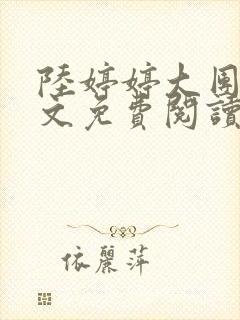 陸婷婷大團
文免費閱讀
依麗萍